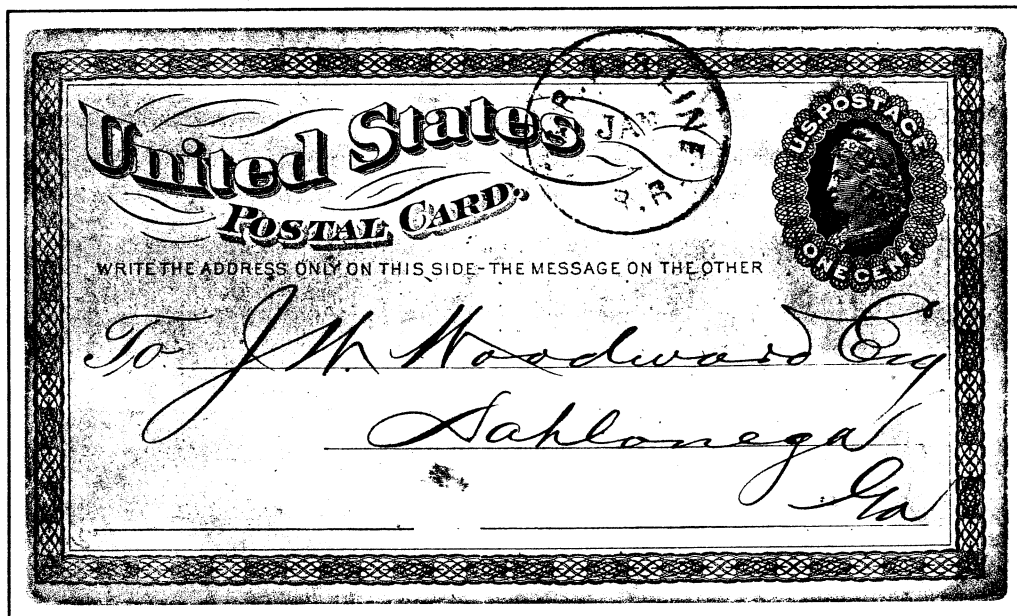 United States
POSTAL CARD.
LINE
JAN
R.R
U.S. POSTAGE
ONE CENT
WRITE THE ADDRESS ONLY ON THIS SIDE-THE MESSAGE ON THE OTHER
To J. W. Woodward Esq
Dahlonega
Ga